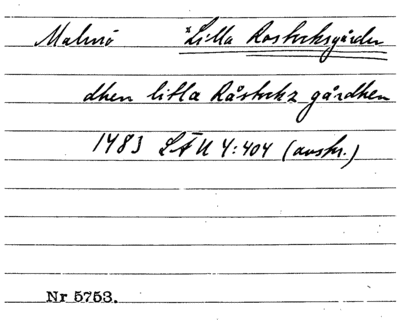 Malmö *Lilla Rostocksgården
dhen litla Råstockz gårdhen
1483 LÄU 4:404 (avskr.)
Nr 5753.